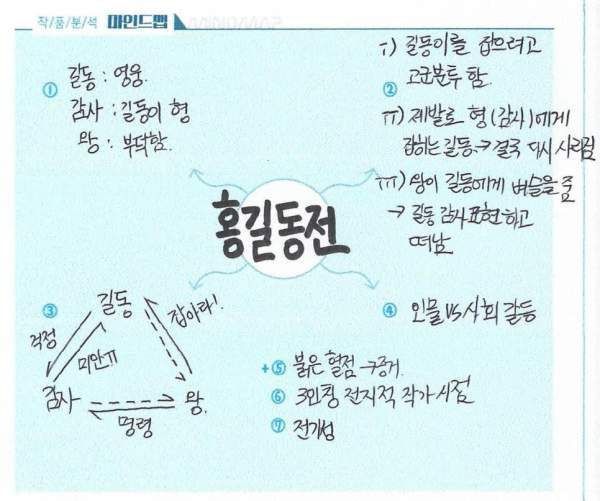 작/품/분/석 마인드맵
① 길동 : 영웅.
감사 : 길동이 형
왕 : 부덕함.
②
i) 길동이를 잡으려고
고군분투 함.
ii) 제발로 형(감사)에게
잡히는 길동 → 결국 다시 사라짐
iii) 왕이 길동에게 벼슬을 줌
→ 길동 감사표현하고
떠남
홍길동전
③ 길동
잡아라!
걱정
미안ㅠ
감사
왕.
명령
④ 인물 VS 사회 갈등
+⑤ 붉은 혈점 → 증거.
⑥ 3인칭 전지적 작가 시점
⑦ 전기성